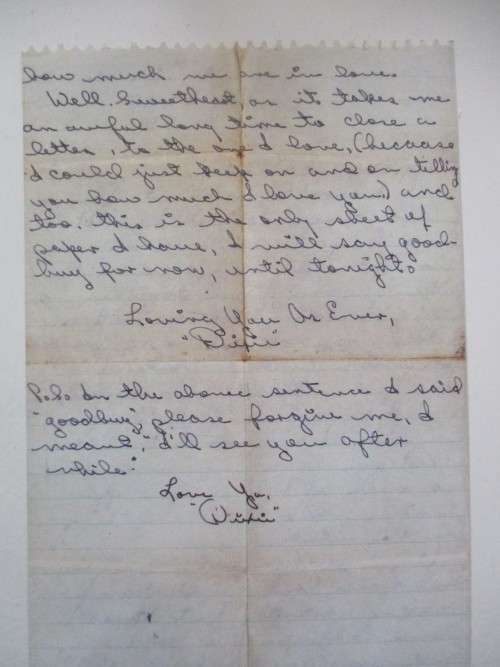 how much we are in love.
Well. Sweetheart, as it takes me
an awful long time to close a
letter, to the one I love, (because
I could just keep on and on telling
you how much I love you.) and
too. this is the only sheet of
paper I have, I will say good-
buy for now, until tonight.
Loving You As Ever,
"Dixie"
P.S. In the above sentence I said
"goodbuy", please forgive me, I
meant, "I'll see you after
while."
Love Ya,
"Dixie"